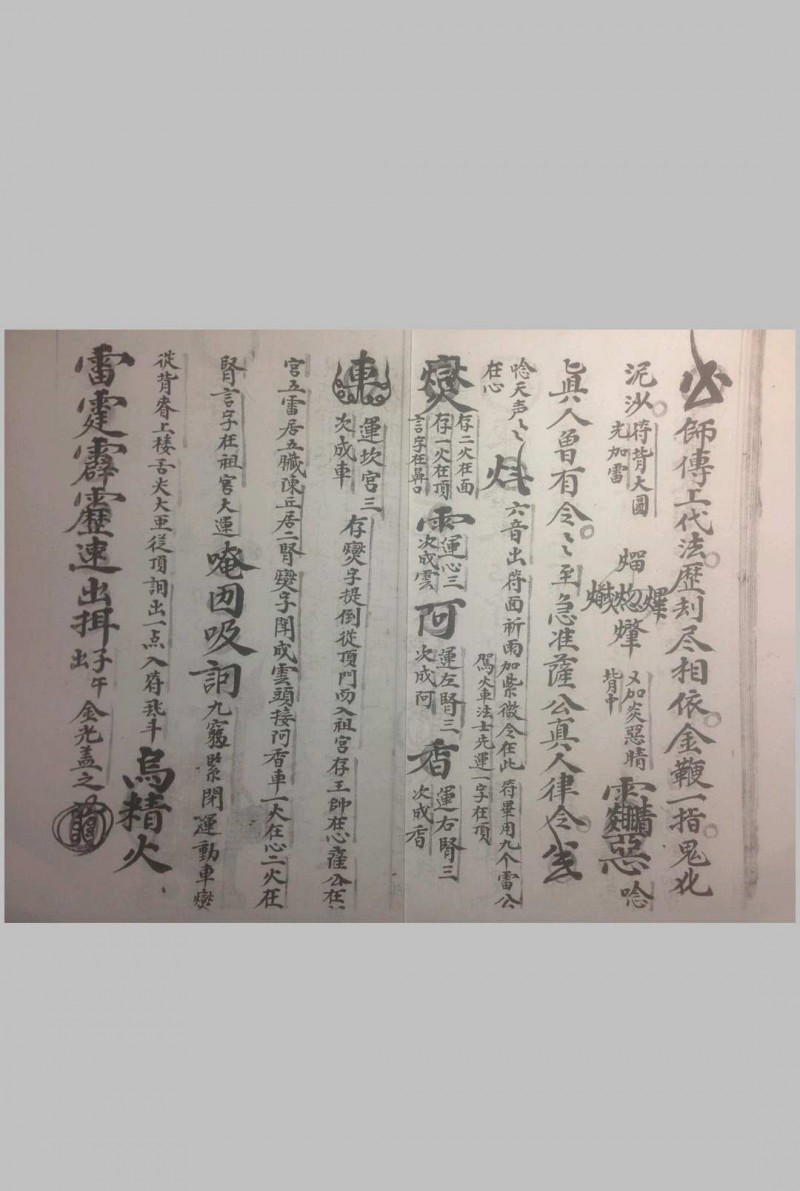 師傳工代法歷刦尽相依金鞭一指鬼化
泥沙
符背大圓
先加雷
又加炎惡睛
背中
惡
唸
真人曾有令〻至急准薩公真人律令
唸天声〻
在心
六音出符面祈雨加紫微令在此
符畢用九个雷公
駕火車法士先運一字在頂
燮
存二火在面
存一火在頂
言字在鼻口
雲
運心三
次成雲
阿
運左腎三
次成阿
香
運右腎三
次成香
車
運坎宮三
次成車
存燮字提倒從頂門而入祖宮存王帥在心薩公在
宮五雷居五臟陳丘居二腎燮字開成雲頭接阿香車一大在心二火在
腎言字在祖宮大運
唵因吸詗
九竅緊閉運動車燮
從背脊上樓舌尖大亜從頂詗出一点入符
斗
烏精火
雷霆霹靂速出揖
子午
出
金光盖之